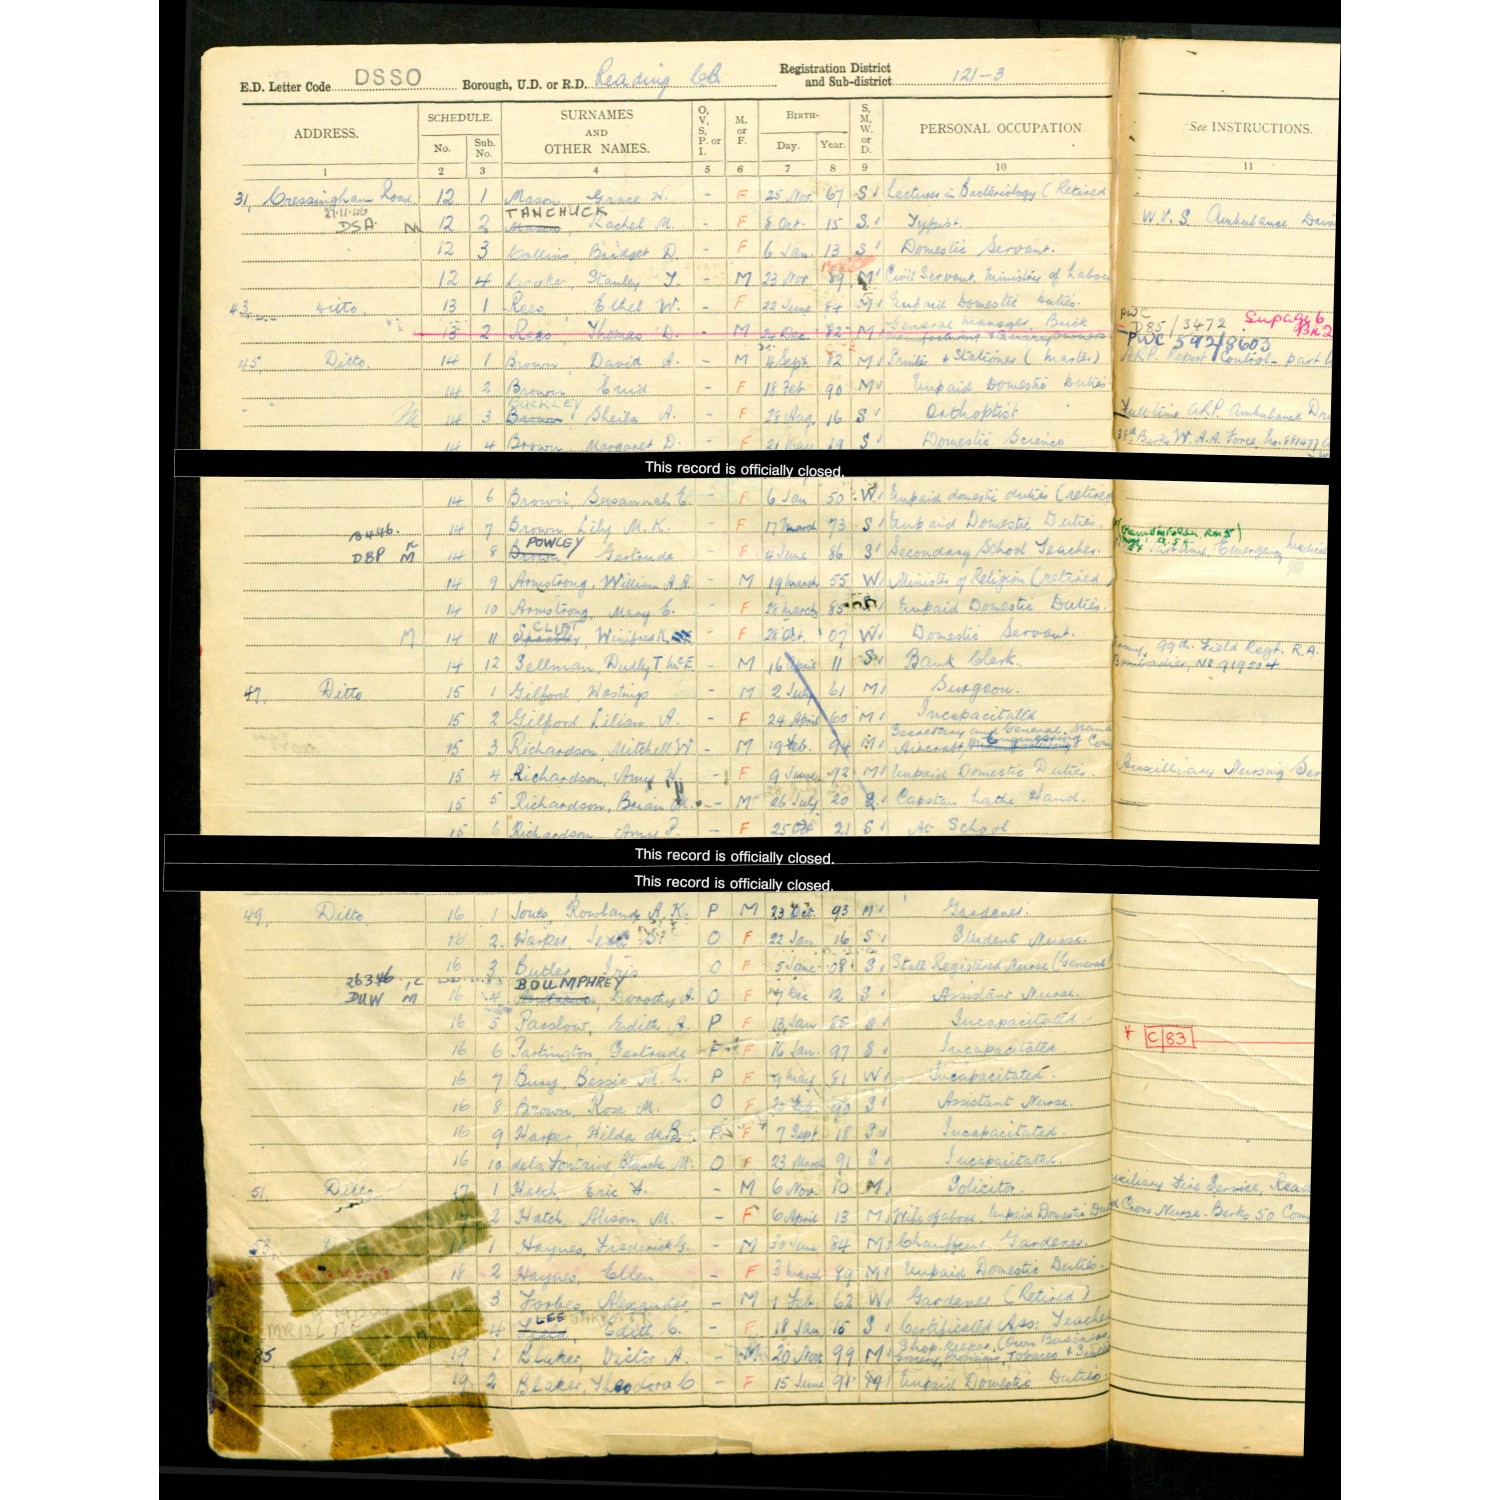 E.D. Letter Code DSSO Borough, U.D. or R.D. Reading C.B. Registration District and Sub-district 121-3
ADDRESS. SCHEDULE. No. Sub. No. SURNAMES AND OTHER NAMES. O, V, S, P. or I. M. or F. BIRTH- Day. Year. S, M, W. or D. PERSONAL OCCUPATION See INSTRUCTIONS.
1 2 3 4 5 6 7 8 9 10 11
31, Cressingham Road 12 1 Mason, Grace H. - F 25 Nov. 67 S Lecturer in Bacteriology (Retired
27.11.46 TANCHUCK
DSA. M 12 2 Rachel M. - F 8 Oct 15 S. Typist. W.V.S. Ambulance
12 3 Collins, Bridget D. - F 6 Jan. 13 S Domestic Servant.
12 4 Crocker, Stanley J. - M 23 Nov. 89 M Civil Servant, Ministry of Labour
43 Ditto 13 1 Rees, Ethel W. - F 22 June 84 M Unpaid Domestic Duties. PWC
13 2 Rees, Thomas D. - M Dec. 82 M General Manager, Brick D85/3472
PWC 592/8603
45, Ditto. 14 1 Brown David A. - M 4 Sept. 82 M Printer & Stationer (Master) ARP Report Control - part
14 2 Brown Enid - F 18 Feb 90 M Unpaid Domestic Duties
BUCKLEY
M 14 3 Brown Sheila A. - F 28 Aug. 16 S Orthoptist Full time A.R.P. Ambulance
14 4 Brown, Margaret D. - F 21 19 S Domestic Science Berks W.A.A. Force,
This record is officially closed.
14 6 Brown, Susannah E. - F 6 Jan 50 W. Unpaid domestic duties (retired
14 7 Brown, Lily M. K. - F 17 March 73 S Unpaid Domestic Duties.
POWLEY
DBP M 14 8 Brown Gertrude - F 4 June 86 S Secondary School Teacher. Part time Emergency Medical
14 9 Armstrong, William A.A. - M 19 March 55 W Minister of Religion (retired)
14 10 Armstrong, Mary E. - F 28 March 85 Unpaid Domestic Duties.
CLIST
M 14 11 Winifred K. - F 28 Oct. 07 W Domestic Servant. Army, 99th Field Regt. R.A.
14 12 Sellman, Dudley T. McE. - M 16 April 11 S Bank Clerk. Bombadier, No 919504
47, Ditto 15 1 Gilford, Hastings - M 2 July 61 M Surgeon.
15 2 Gilford Lilian A. - F 24 April 60 M Incapacitated
15 3 Richardson, Mitchell W - M 19 Feb. 94 M Secretary and General
Aircraft, Engineering
15 4 Richardson, Amy H. - F 9 June 92 M Unpaid Domestic Duties. Auxilliary Nursing Ser
15 5 Richardson, Brian - M 26 July 20 S. Capstan Lathe Hand.
15 6 Richardson, Amy P. - F 25 Oct 21 S At School
This record is officially closed.
This record is officially closed.
49, Ditto 16 1 Jones, Rowland A. K. P M 23 Oct. 93 M Gardener.
16 2. Harper O F 22 Jan 16 S Student Nurse.
16 3 Butler Iris O F 5 June 08 S State Registered Nurse (General)
BOUMPHREY
DUW M 16 4 Dorothy A. O F Dec 12 S Assistant Nurse.
16 5 Parslow, Edith A. P F 13 Jan 85 S Incapacitated
16 6 Partington, Gertrude P F 16 Jan. 97 S Incapacitated C/83
16 7 Bury, Bessie M. L. P F 9 May 81 W Incapacitated.
16 8 Brown, Rose M. O F Feb. 90 S Assistant Nurse.
16 9 Harper, Hilda de B. P F 7 Sept 18 S Incapacitated.
16 10 de la Fontaine Blanche M. O F 23 March 91 S Incapacitated.
51, Ditto 17 1 Hatch, Eric H. - M 6 Nov. 10 M Solicitor. Auxiliary Fire Service, Read
2 Hatch, Alison, M. - F 6 April 13 M Wife of above, Unpaid Domestic Cross Nurse. Berks 50
53, 1 Haynes, Frederick G. - M 30 June 84 M Chauffeur Gardener.
18 2 Haynes, Ellen - F 3 March 89 M Unpaid Domestic Duties.
3 Forbes, Alexander - M 1 Feb. 62 W Gardener (Retired)
LEE
4 Edith C. - F 18 Jan 16 S Certificated Ass: Teacher
85 19 1 Blaker Victor A. - M 20 Nov 99 M Shop-keeper (Own Business
Grocery, Provisions, Tobacco &
19 2 Blaker, Theodora C - F 15 June 98 M Unpaid Domestic Duties.